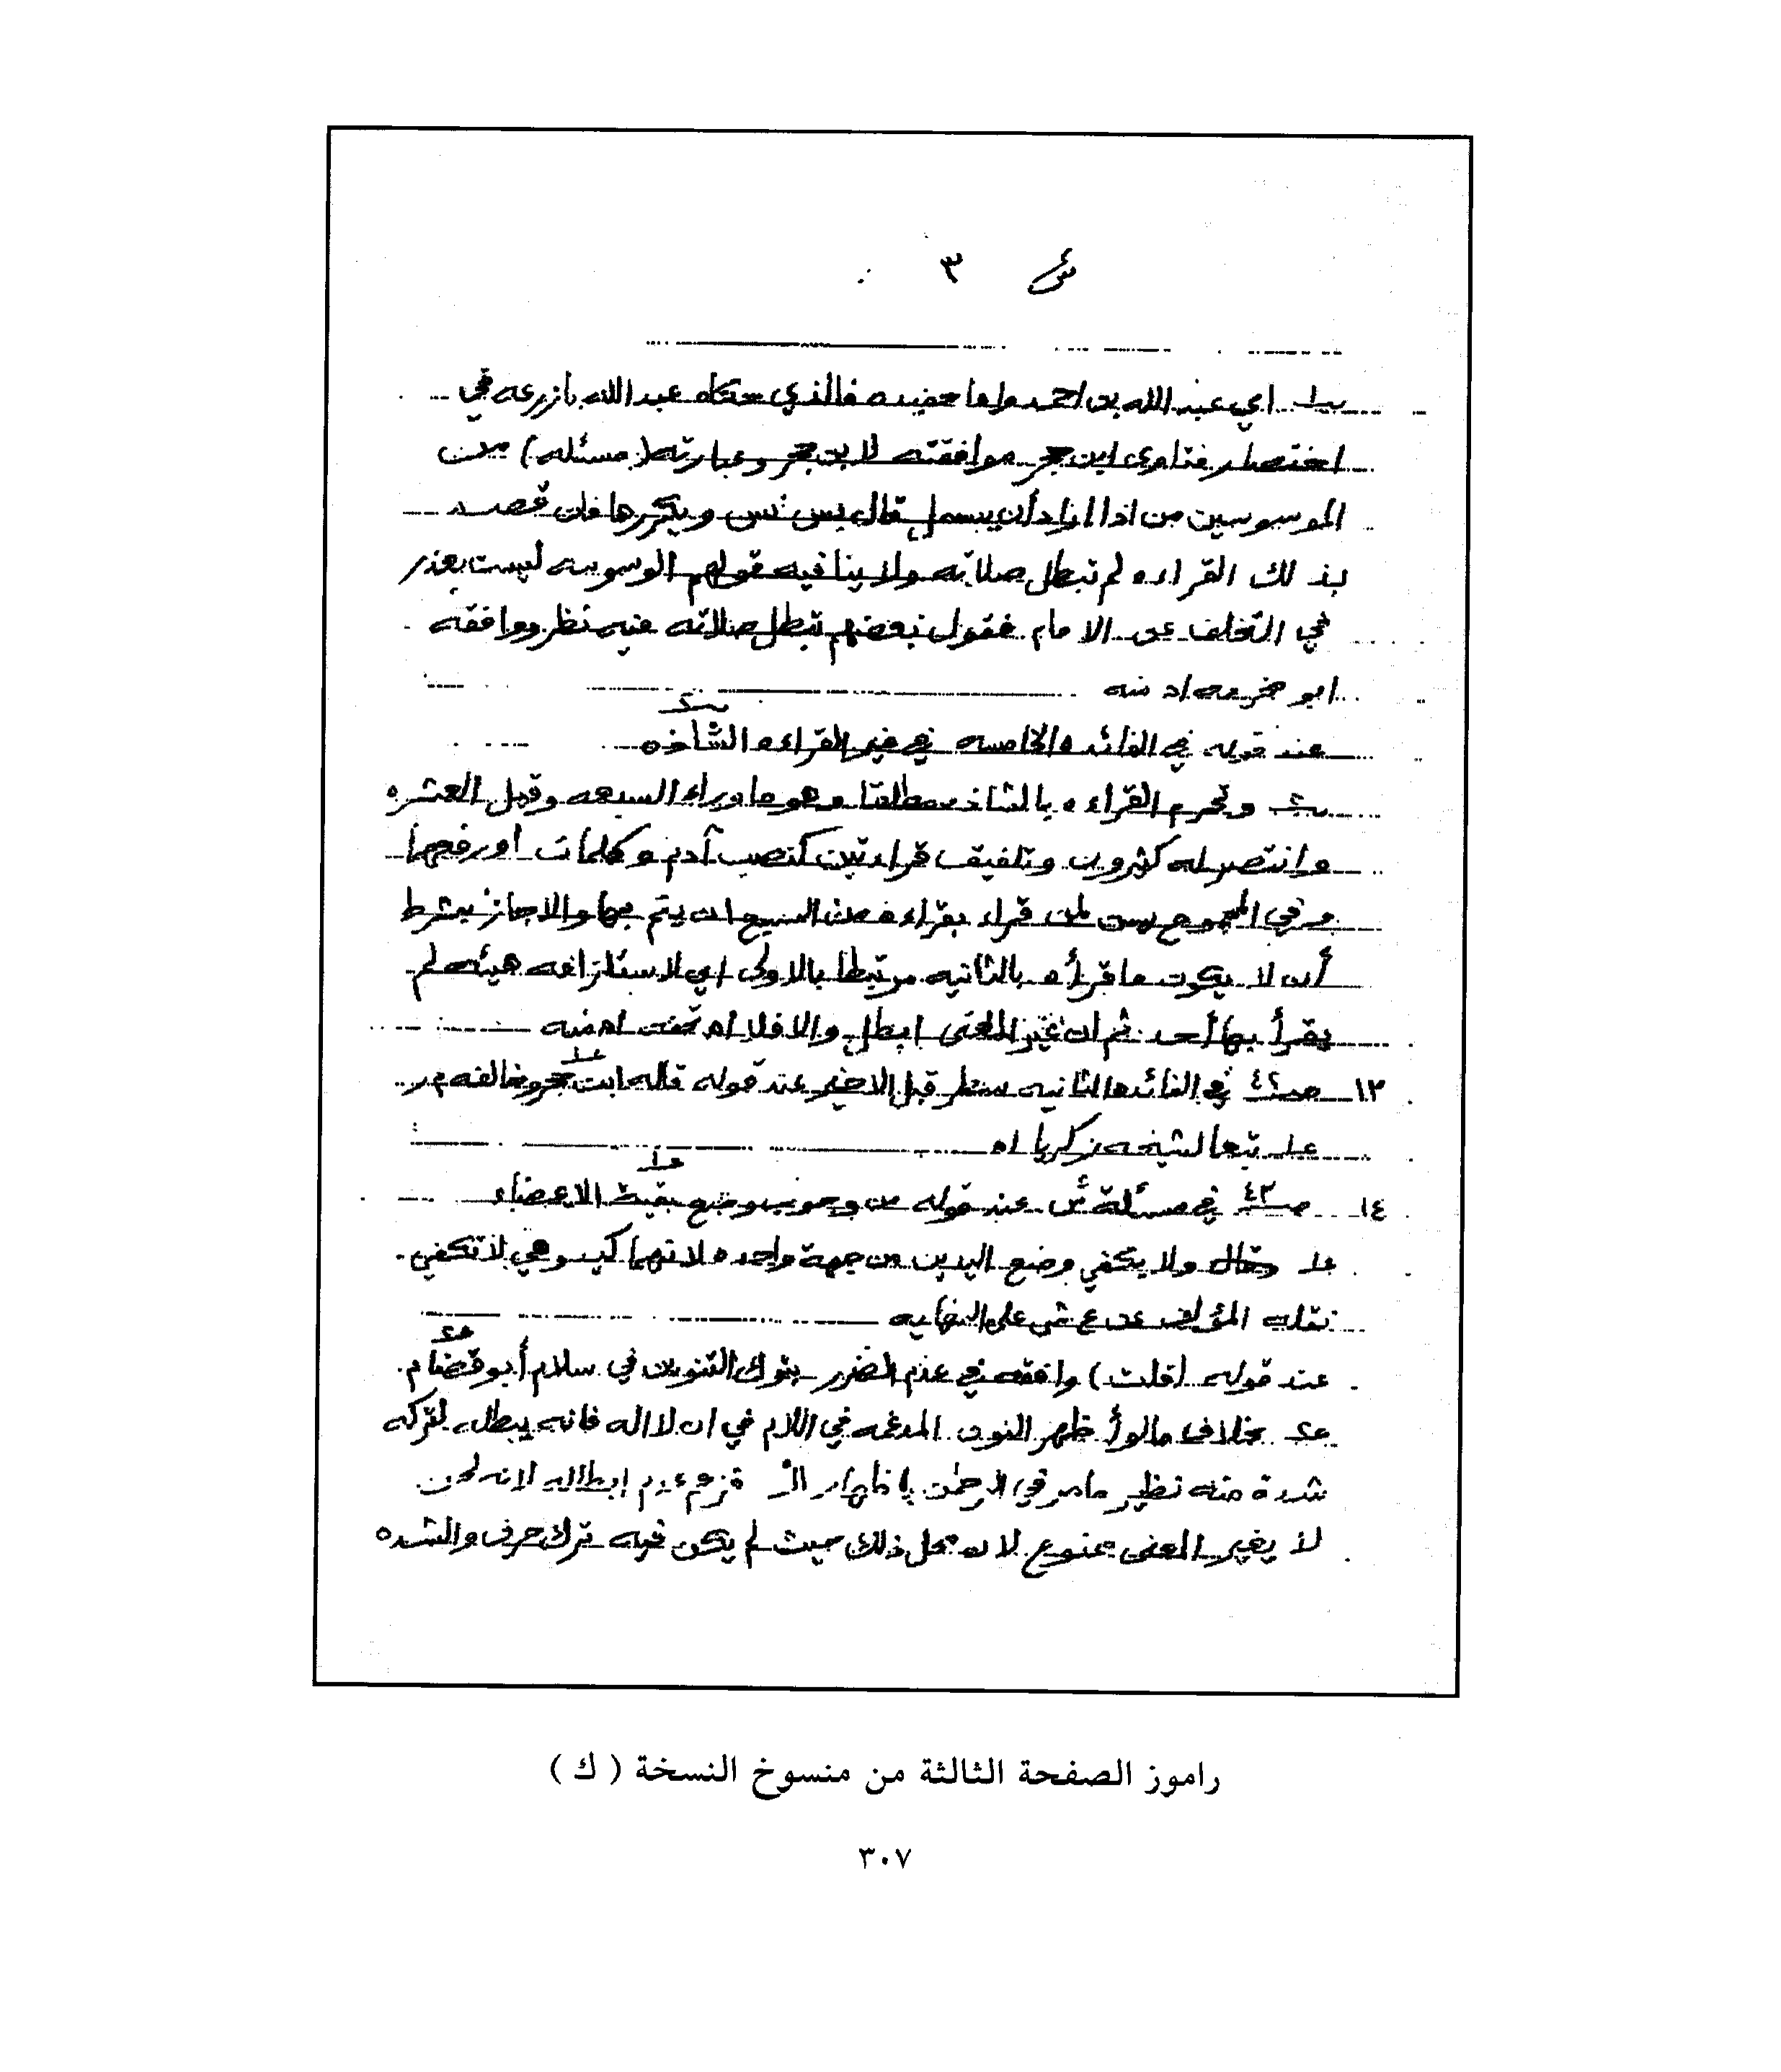 ٣
اي عبد الله بن احمد واما حفيده فالذي حكاه عبد الله بازرعه في
اختصار فتاوى ابن حجر موافقته لابن حجر وعبارته (مسئله) من
الموسوسين من اذا اراد أن يبسمل قال بس بس ويكررها فان قصد
بذلك القراءه لم تبطل صلاته ولا ينافيه قولهم الوسوسه ليست بعذر
في التخلف عن الامام فقول بعضهم تبطل صلاته فيه نظر ووافقه
ابو مخرمه اه منه
عند قوله في الفائده الخامسه في غير القراءه الشاذه
وتحرم القراءه بالشاذ مطلقا وهو ما وراء السبعه وقيل العشره
وانتصر له كثيرون وتلفيق قراءتين كنصب آدم وكلمات او رفعهما
وفي المجموع يسن لمن قراء بقراءه من السبع ان يتم بها والا جاز بشرط
أن لا يكون ما قرأه بالثانيه مرتبطا بالاولى اي لاستلزامه هيئه لم
يقرأ بها أحد ثم ان غير المعنى ابطل والا فلا اه تحفه اه منه
١٣ صـ ٤٢ في الفائده الثانيه سطر قبل الاخير عند قوله قاله ابن حجر وخالفه م ر
عـ١ تبعا لشيخه زكريا اه
عـ١
١٤ صـ ٤٣ في مسئلة ش عند قوله من وجوب وضع بقية الاعضاء
عـ١ وقال ولا يكفي وضع اليدين من جهة واحده لانهما كيد وهي لا تكفي
نقله المؤلف عن ع ش على النهايه
عـ٢
عند قوله (قلت) وافقه في عدم الضرر بترك التنوين في سلام أبو قضام
عـ٢ بخلاف ما لو أظهر النون المدغمه في اللام في ان لا اله فانه يبطل لتركه
شدة منه نظير ما مر في الرحمن باظهار ال فزعم عدم ابطاله لانه لحن
لا يغير المعنى ممنوع لان محل ذلك حيث لم يكن فيه ترك حرف والشده
راموز الصفحة الثالثة من منسوخ النسخة ( ك )
٣٠٧